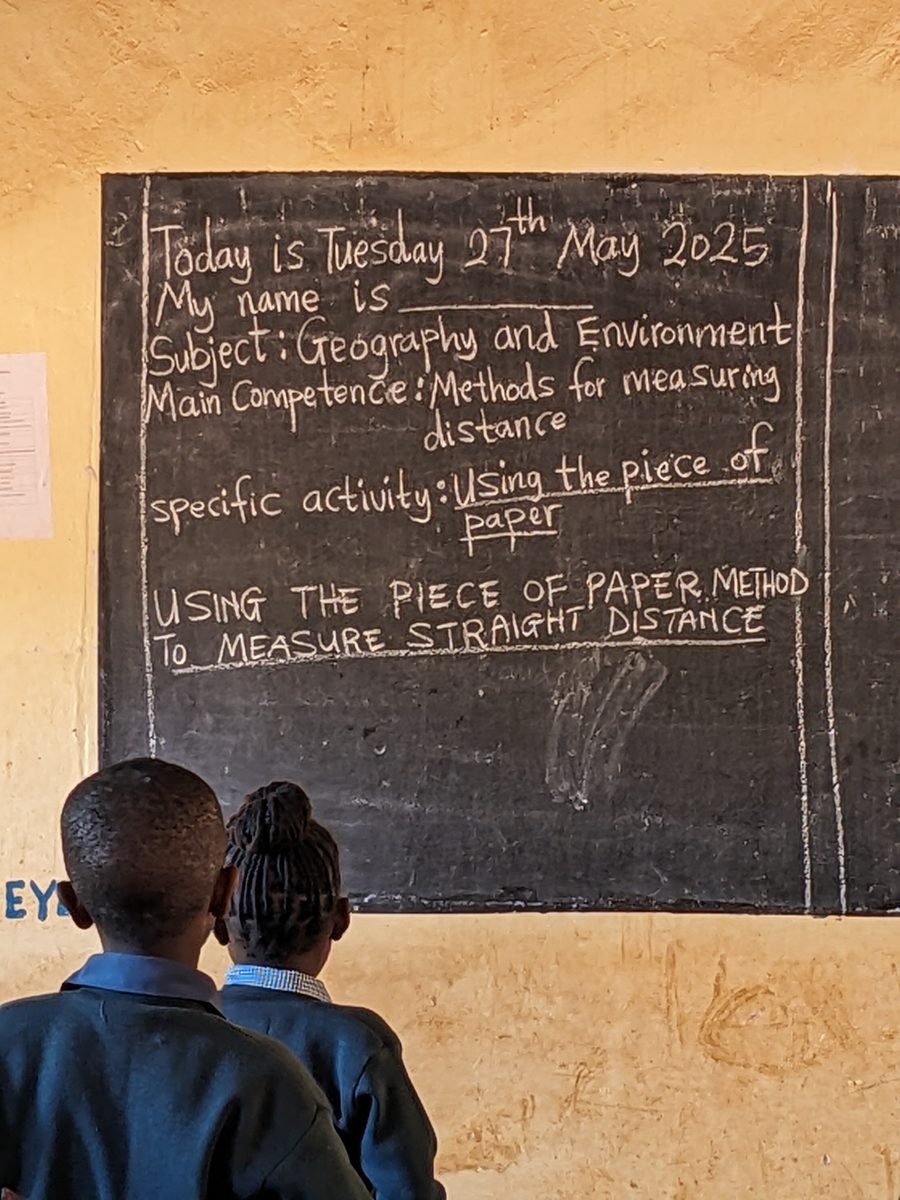 Today is Tuesday 27th May 2025
My name is __________
Subject: Geography and Environment
Main Competence: Methods for measuring
distance
specific activity: Using the piece of
paper
USING THE PIECE OF PAPER METHOD
TO MEASURE STRAIGHT DISTANCE
EY